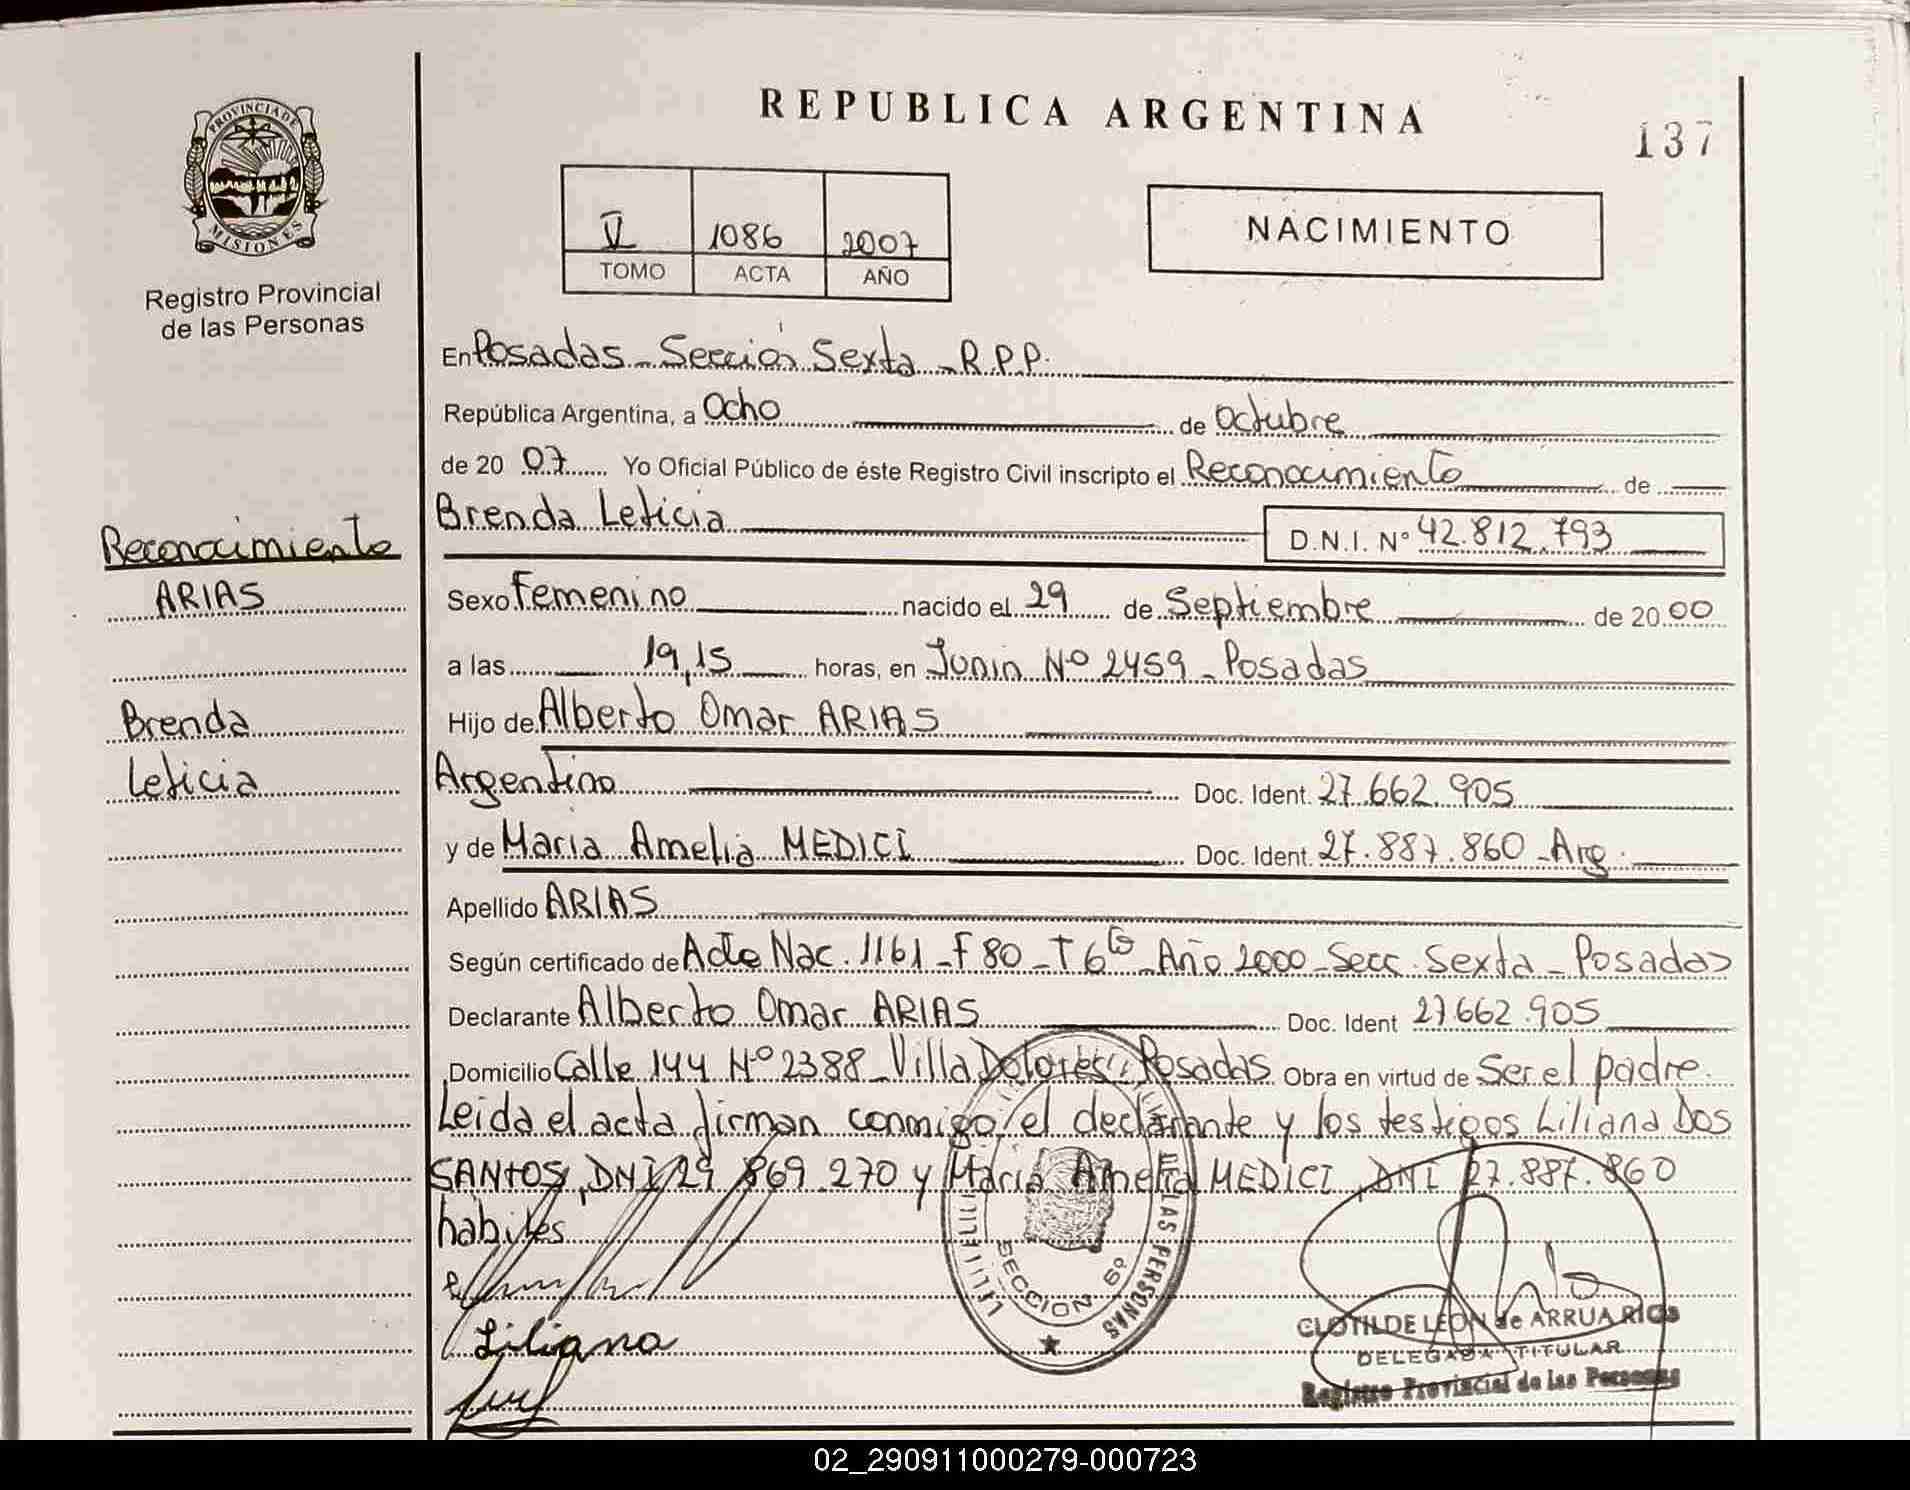 PROVINCIA DE
MISIONES
Registro Provincial
de las Personas
REPUBLICA ARGENTINA
137
V 1086 2007
TOMO ACTA AÑO
NACIMIENTO
En Posadas - Sección Sexta - R.P.P.
República Argentina, a Ocho de Octubre
de 20 07 Yo Oficial Público de éste Registro Civil inscripto el Reconocimiento de
Brenda Leticia D.N.I. Nº 42.812.793
Reconocimiento
ARIAS
Brenda
Leticia
Sexo Femenino nacido el 29 de Septiembre de 20 00
a las 19,15 horas, en Junin Nº 2459 - Posadas
Hijo de Alberto Omar ARIAS
Argentino Doc. Ident. 27.662.905
y de Maria Amelia MEDICI Doc. Ident. 27.887.860 - Arg.
Apellido ARIAS
Según certificado de Acta Nac. 1161 - F 80 - T 6to - Año 2000 - Secc. Sexta - Posadas
Declarante Alberto Omar ARIAS Doc. Ident 27.662.905
Domicilio Calle 144 Nº 2388 - Villa Dolores, Posadas Obra en virtud de Ser el padre.
Leida el acta firman conmigo, el declarante y los testigos Liliana Dos
SANTOS, DNI 29 869.270 y Maria Amelia MEDICI, DNI 27.887.860
habiles
Liliana
LAS PERSONAS
SECCION 6º
CLOTILDE LEON de ARRUA RIOS
DELEGADA TITULAR
Registro Provincial de las Personas
02_290911000279-000723